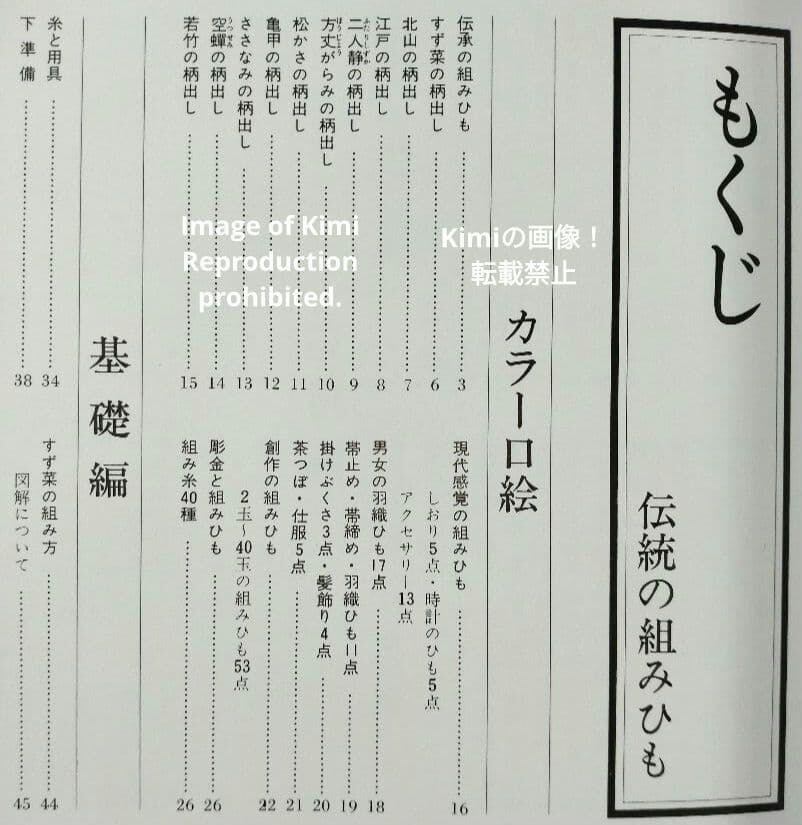 もくじ
伝統の組みひも
カラー口絵
伝承の組みひも 3
すず菜の柄出し 6
北山の柄出し 7
江戸の柄出し 8
二人静の柄出し 9
ふたりしずか
方丈がらみの柄出し 10
ほうじょう
松かさの柄出し 11
亀甲の柄出し 12
ささなみの柄出し 13
空蟬の柄出し 14
うつせみ
若竹の柄出し 15
現代感覚の組みひも 16
しおり5点・時計のひも5点
アクセサリー13点
男女の羽織ひも17点 18
帯止め・帯締め・羽織ひも11点 19
掛けぶくさ3点・髪飾り4点 20
茶つぼ・仕服5点 21
創作の組みひも 22
2玉〜40玉の組みひも53点
彫金と組みひも 26
組み糸40種 26
基礎編
糸と用具 34
下準備 38
すず菜の組み方 44
図解について 45
Image of Kimi
Reproduction
prohibited.
Kimiの画像！
転載禁止